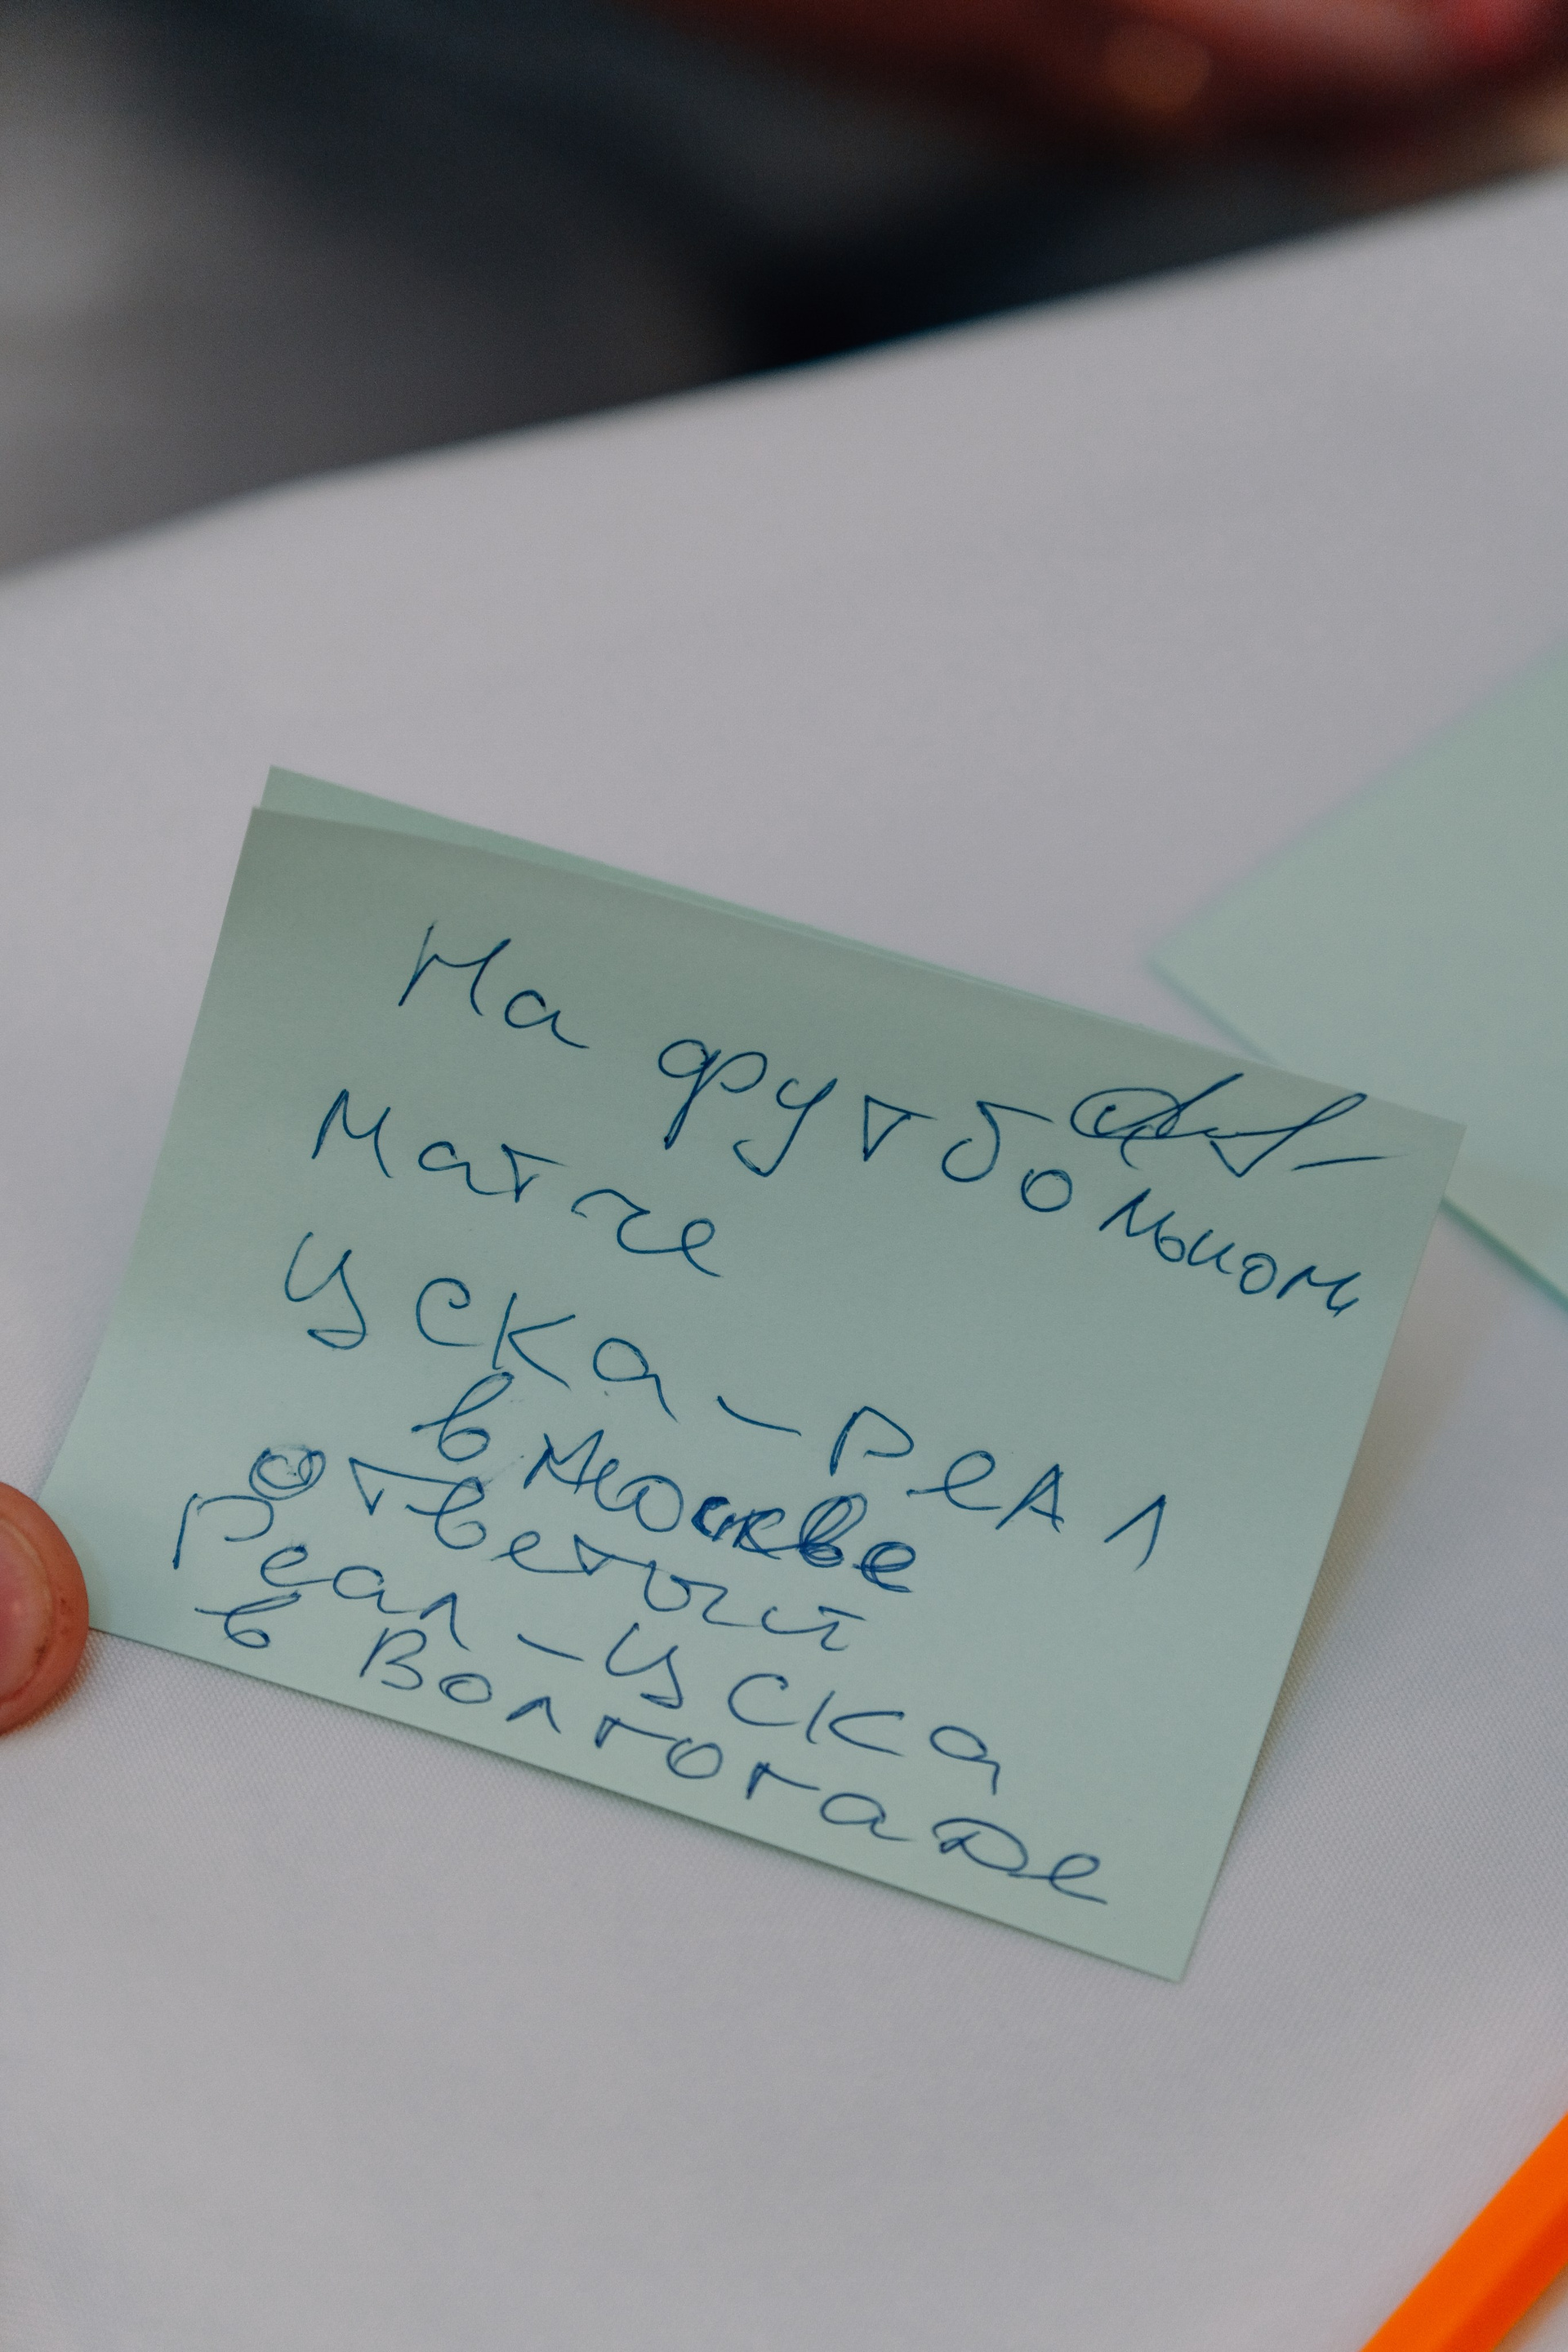 На футбольном
матче
ЦСКа-РеАл
в Москве
ответный
Реал-ЦСКа
в Волгограде